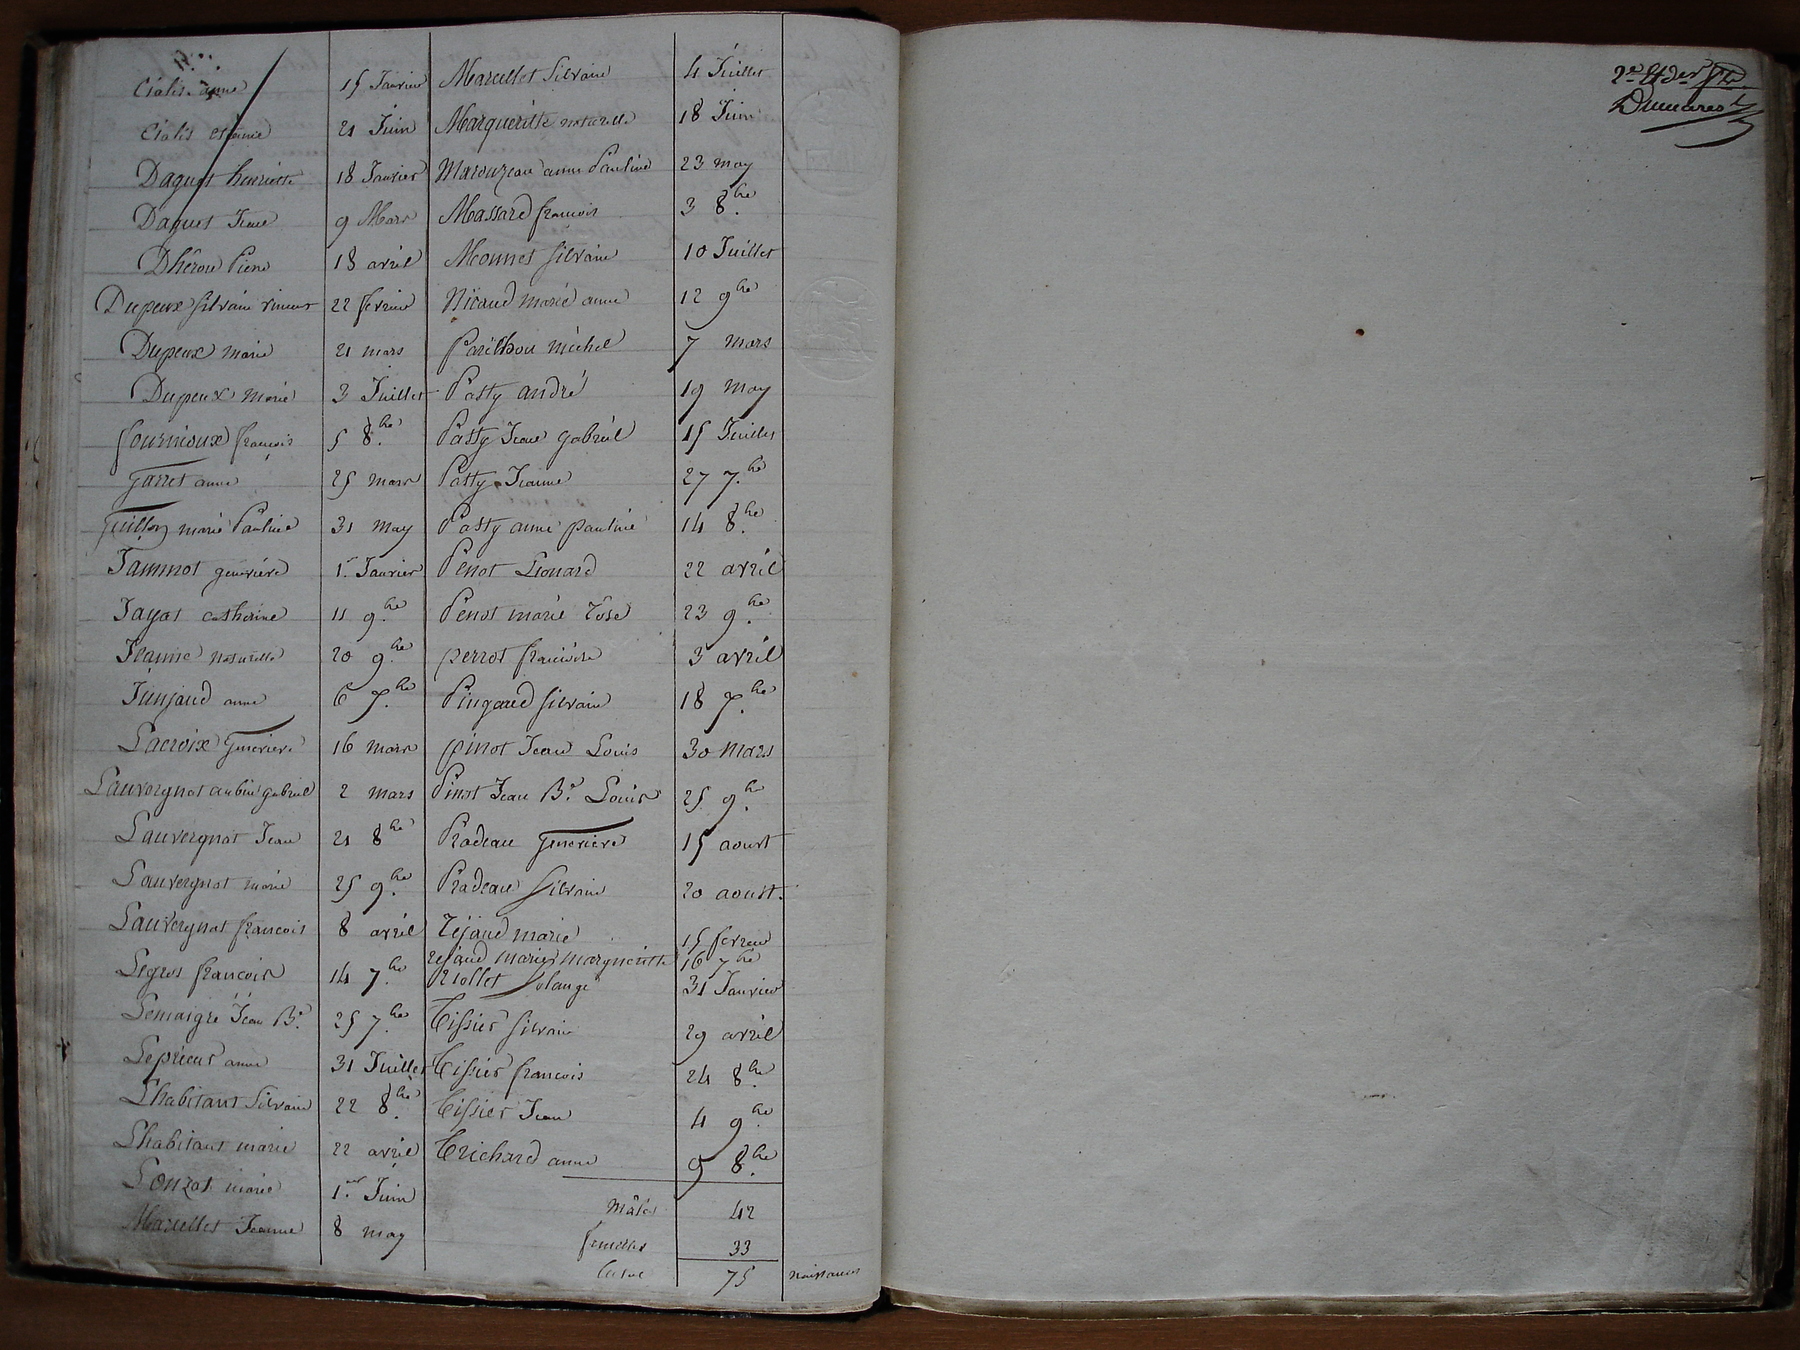 Cialis anne 15 Janvier
Cialis etienne 21 Juin
Daguet henriette 18 Janvier
Daguet Jean 9 Mars
Dhérou Pierre 18 avril
Dupeux Silvain vincent 22 fevrier
Dupeux marie 21 mars
Dupeux Marie 3 Juillet
fournioux françois 5 8.bre
garret anne 25 mars
guillon marie Pauline 31 May
Jammot genevieve 1.er Janvier
Jayat catherine 11 9.bre
Jeanne naturelle 20 9.bre
Junjaud anne 6 7.bre
Lacroix Genevieve 16 mars
Lauvergnat aubin gabriel 2 mars
Lauvergnat Jean 21 8.bre
Lauvergnat marie 25 9.bre
Lauvergnat francois 8 avril
Legros francois 14 7.bre
Lemaigre Jean B.te 25 7.bre
Leprieur anne 31 Juillet
Lhabitant Silvain 22 8.bre
Lhabitant marie 22 avril
Lonzat marie 1.er Juin
Marcillet Jeanne 8 may
Marcillet Silvain 4 Juillet
Margueritte naturelle 18 Juin
Marouzeau anne Pauline 23 may
Massard francois 3 8.bre
Monnet Silvain 10 Juillet
Nicaud marie anne 12 9.bre
michel 7 mars
Pasty andré 19 may
Pasty Jean gabriel 15 Juillet
Pasty Jeanne 27 7.bre
Pasty anne pauline 14 8.bre
Penot Leonard 22 avril
Penot marie rose 23 9.bre
perrot 3 avril
Pingard Silvain 18 7.bre
pinot Jean Louis 30 Mars
Pinot Jean B.te Louis 25 9.bre
Pradeau Genevieve 15 aoust
Pradeau Silvain 20 aoust.
réjaud marie 15 fevrier
rejaud marie margueritte 16 7.bre
Riollet Solange 31 Janvier
Tissier Silvain 29 avril
Tissier francois 24 8.bre
Tissier Jean 4 9.bre
Trichard anne 9 8.bre
Mâles 42
femelles 33
75 naissances
2.e Et der